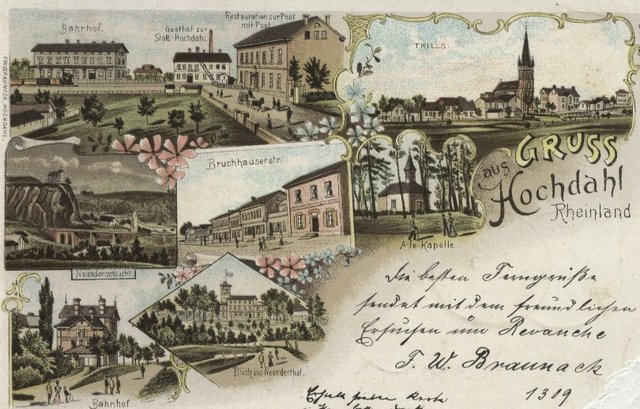 Bahnhof.
Gasthof zur
Stat. Hochdahl.
Restauration zur Post
mit Post.
TRILLS
Bruchhauserstr.
Alte Kapelle
GRUSS
aus
Hochdahl
Rheinland.
Neanderschlucht.
Bahnhof.
Blick ins Neanderthal.
Die besten Ferngrüße
sendet mit dem freundlichen
Ersuchen um Revanche
F. W. Braunack
1319